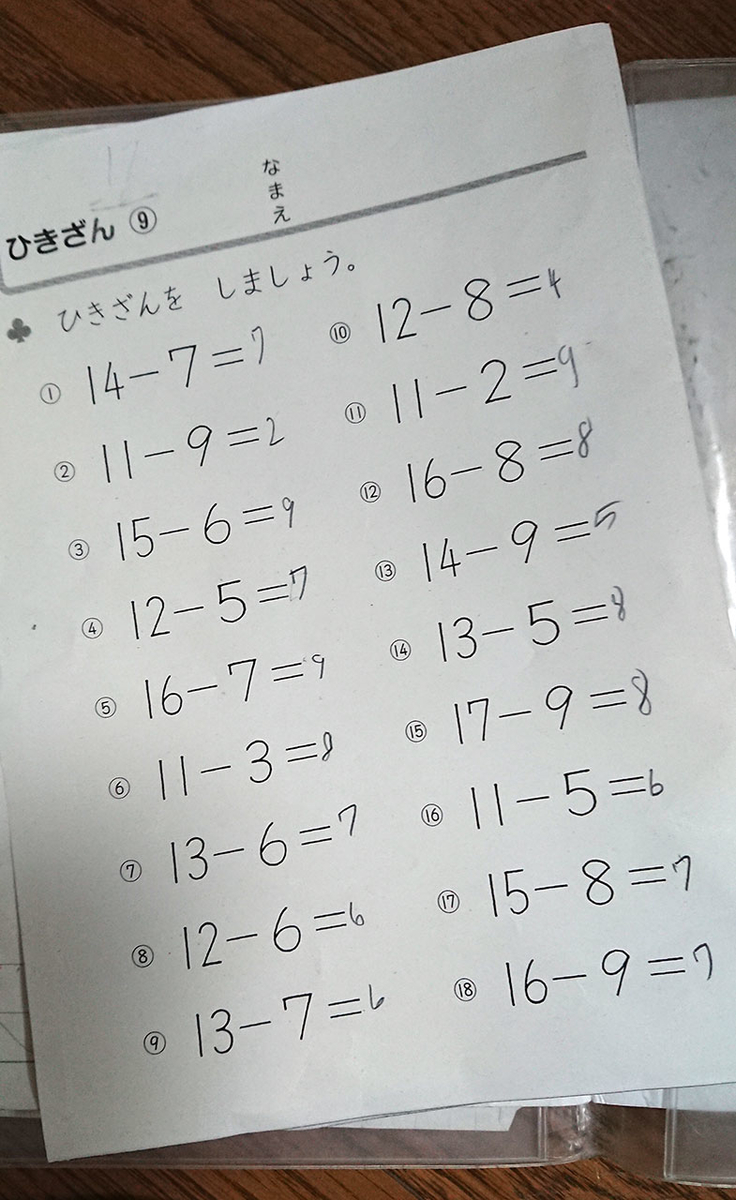 ひきざん ⑨
なまえ
♣ ひきざんを しましょう。
① 14－7＝7
② 11－9＝2
③ 15－6＝9
④ 12－5＝7
⑤ 16－7＝9
⑥ 11－3＝8
⑦ 13－6＝7
⑧ 12－6＝6
⑨ 13－7＝6
⑩ 12－8＝4
⑪ 11－2＝9
⑫ 16－8＝8
⑬ 14－9＝5
⑭ 13－5＝8
⑮ 17－9＝8
⑯ 11－5＝6
⑰ 15－8＝7
⑱ 16－9＝7